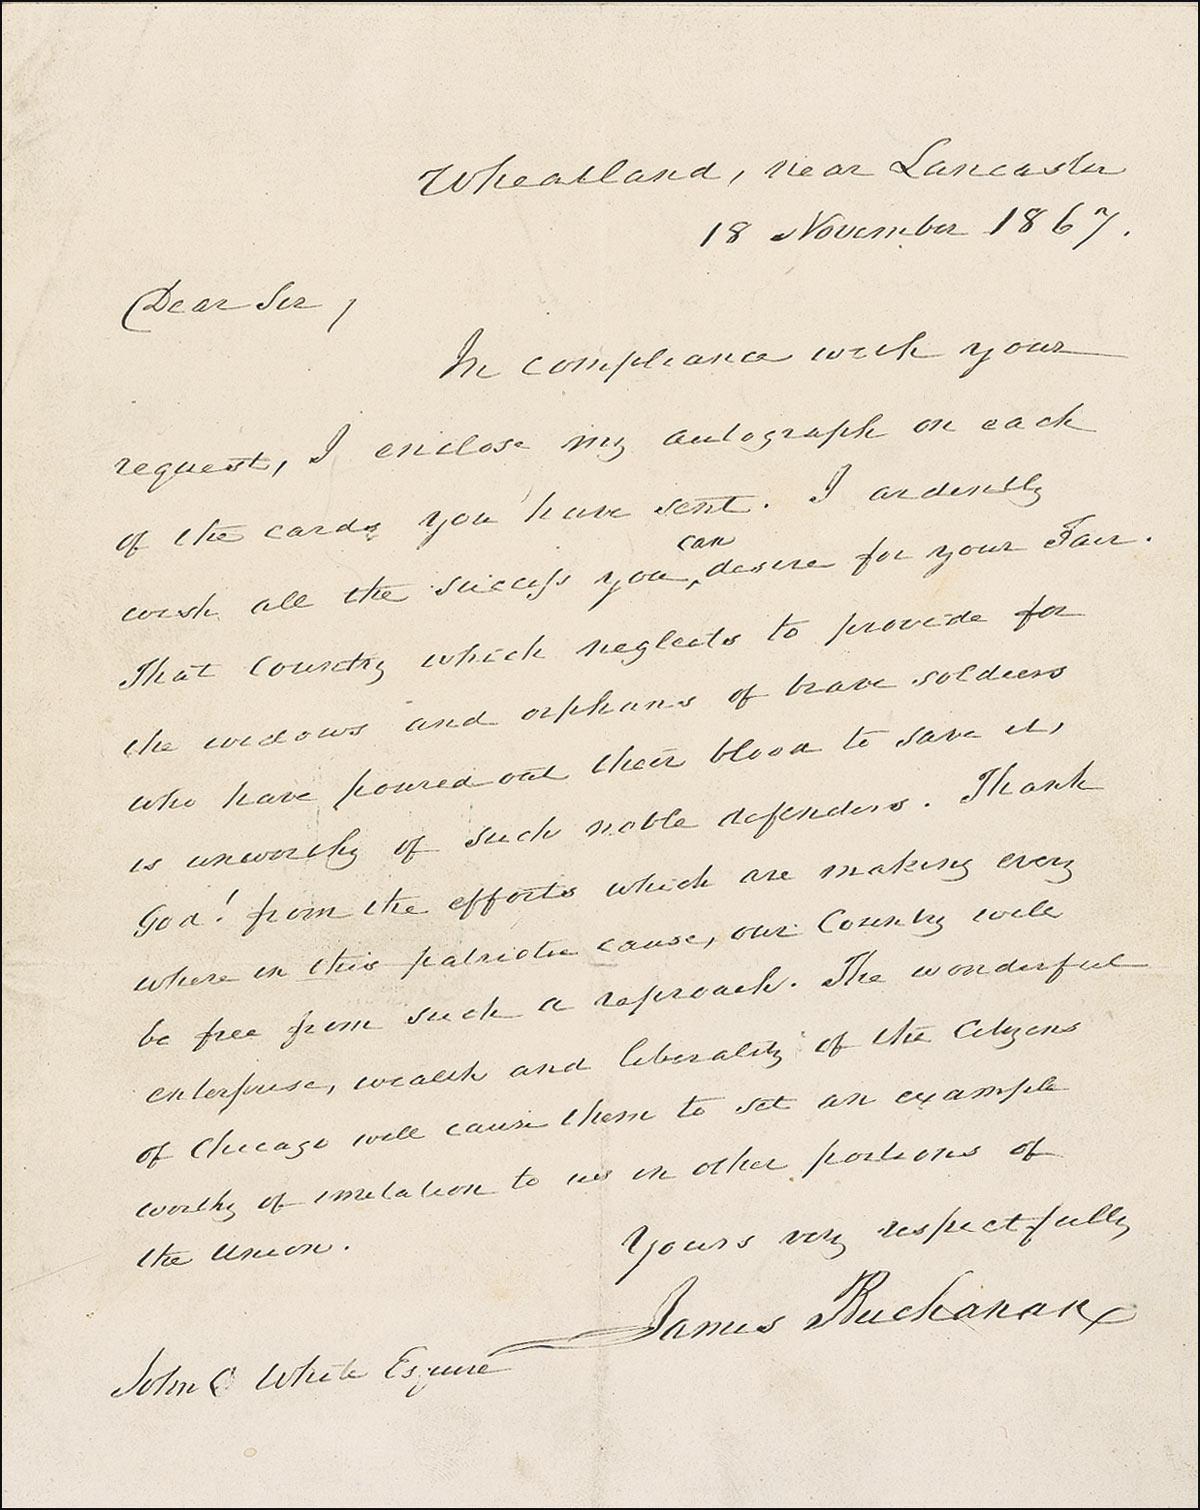 Wheatland, near Lancaster
18 November 1867.
Dear Sir,
In compliance with your
request, I enclose my autograph on each
of the cards you have sent. I ardently
can
wish all the success you ‸ desire for your Fair.
That Country which neglects to provide for
the widows and orphans of brave soldiers
who have poured out their blood to save it,
is unworthy of such noble defenders. Thank
God! from the efforts which are making every
where in this patriotic cause, our Country will
be free from such a reproach. The wonderful
enterprise, wealth and liberality of the Citizens
of Chicago will cause them to set an example
worthy of imitation to us in other portions of
the Union.
Yours very respectfully
James Buchanan
John C White Esquire